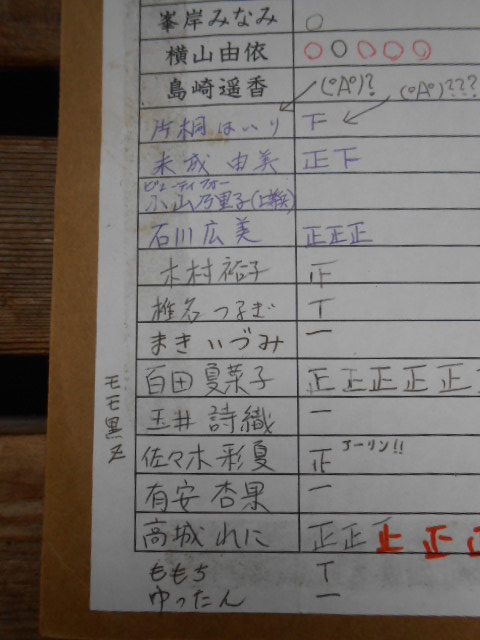 峯岸みなみ ○
横山由依 ○○○○○
島崎遥香 (°A°)? (°A°)???
片桐はいり 下
未成由美 正下
ビューティフォー
小山乃里子
石川広美 正正正
木村裕子 正
椎名つるぎ T
まきいづみ 一
百田夏菜子 正正正正正
玉井詩織 一
佐々木彩夏 正 アーリン!!
有安杏果 一
高城れに 正正正正正
ももち T
ゆったん 一
モモ黒Z